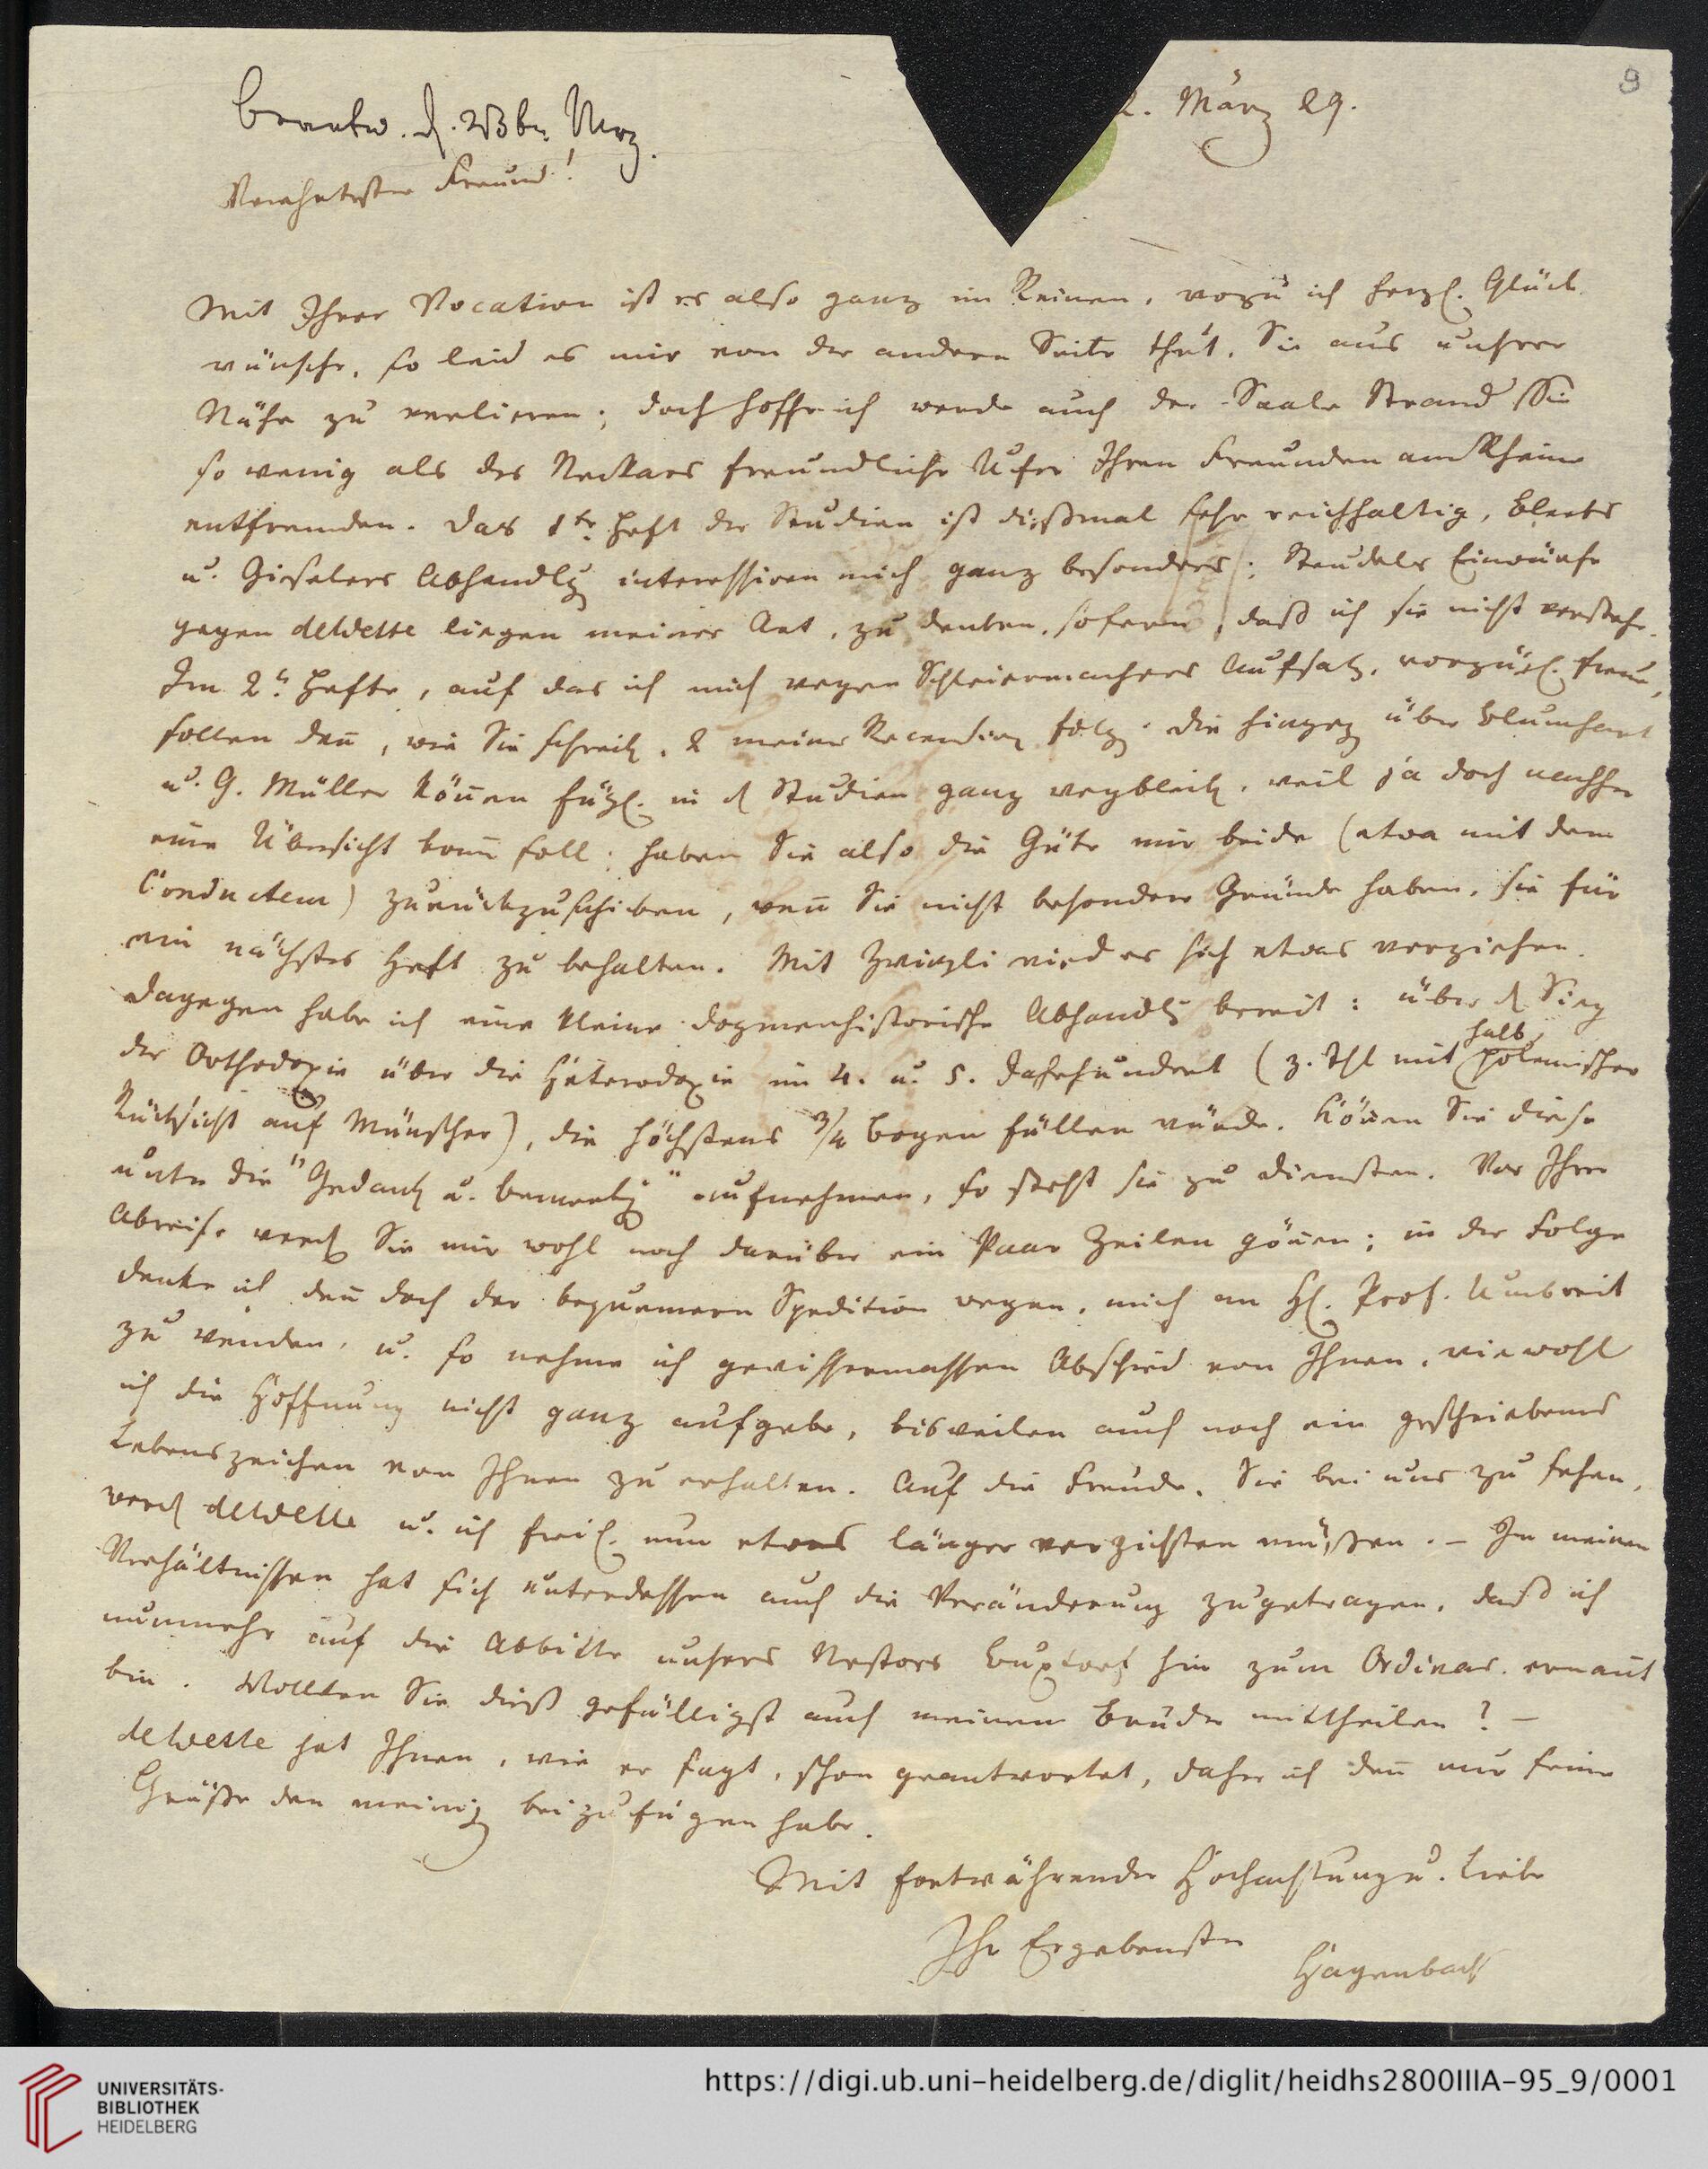 9
2. März 29.
beantw. d. 23ten Merz.
Verehrtester Freund!
Mit Ihrer Vocation ist es also ganz im Reinen, wozu ich herzl. Glück
wünsche, so leid es mir von der andern Seite thut, Sie aus unsrer
Nähe zu verlieren; doch hoffe ich werde auch der Saale Strand Sie
so wenig als des Neckars freundliche Ufer Ihren Freunden am Rheine
entfremden. Das 1te Heft der Studien ist dießmal sehr reichhaltig, Bleeks
u. Gieselers Abhandlg interessiren mich ganz besonders; Steudels Einwürfe
gegen deWette liegen meiner Art, zu denken, so fern, daß ich sie nicht verstehe.
Im 2n Hefte, auf das ich mich wegen Schleiermachers Aufsatz, vorzügl. freue,
sollen den̄, wie Sie schreib, 2 meiner Recension folg. die hingeg über Blumhart
u. G. Müller kön̄en fügl. in d Studien ganz wegbleib, weil ja doch nachher
eine Übersicht kom̄ soll; haben Sie also die Güte mir beide (etwa mit dem
Conducteur) zurückzuschicken, wen̄ Sie nicht besondere Gründe haben, sie für
ein nächstes Heft zu behalten. Mit Zwingli wird es sich etwas verziehen.
Dagegen habe ich eine kleine dogmenhistorische Abhandlg bereit: über d Sieg
der Orthodoxie über die Häterodoxie im 4. u. 5. Jahrhundert (z. Thl mit halb polemischer
Rücksicht auf Münscher), die höchstens 3/4 Bogen füllen würde. Kön̄en Sie diese
unter die "Gedank u. Bemerkg" aufnehmen, so steht sie zu Diensten. Vor Ihrer
Abreise werd Sie mir wohl noch darüber ein Paar Zeilen gön̄en; in der Folge
denke ich den̄ doch der bequemern Spedition wegen, mich an H. Prof. Umbreit
zu wenden, u. so nehme ich gewissermassen Abschied von Ihnen, wiewohl
ich die Hoffnung nicht ganz aufgebe, bisweilen auch noch ein geschriebenes
Lebenszeichen von Ihnen zu erhalten. Auf die Freude, Sie bei uns zu sehen,
werd deWette u. ich freil. nun etwas länger verzichten müßen. – In meinen
Verhältnissen hat sich unterdessen auch die Veränderung zugetragen, daß ich
nunmehr auf die Abbitte unsers Nestors Buxtorf hin zum Ordinar. ernan̄t
bin. Wollten Sie dieß gefälligst auch meinem Bruder mittheilen? –
deWette hat Ihnen, wie er sagt, schon geantwortet, daher ich den̄ nur seine
Grüße den meinig beizufügen habe.
Mit fortwährender Hochachtung u. Liebe
Ihr Ergebenster
Hagenbach
UNIVERSITÄTS-
BIBLIOTHEK
HEIDELBERG
https://digi.ub.uni-heidelberg.de/diglit/heidhs2800IIIA-95_9/0001